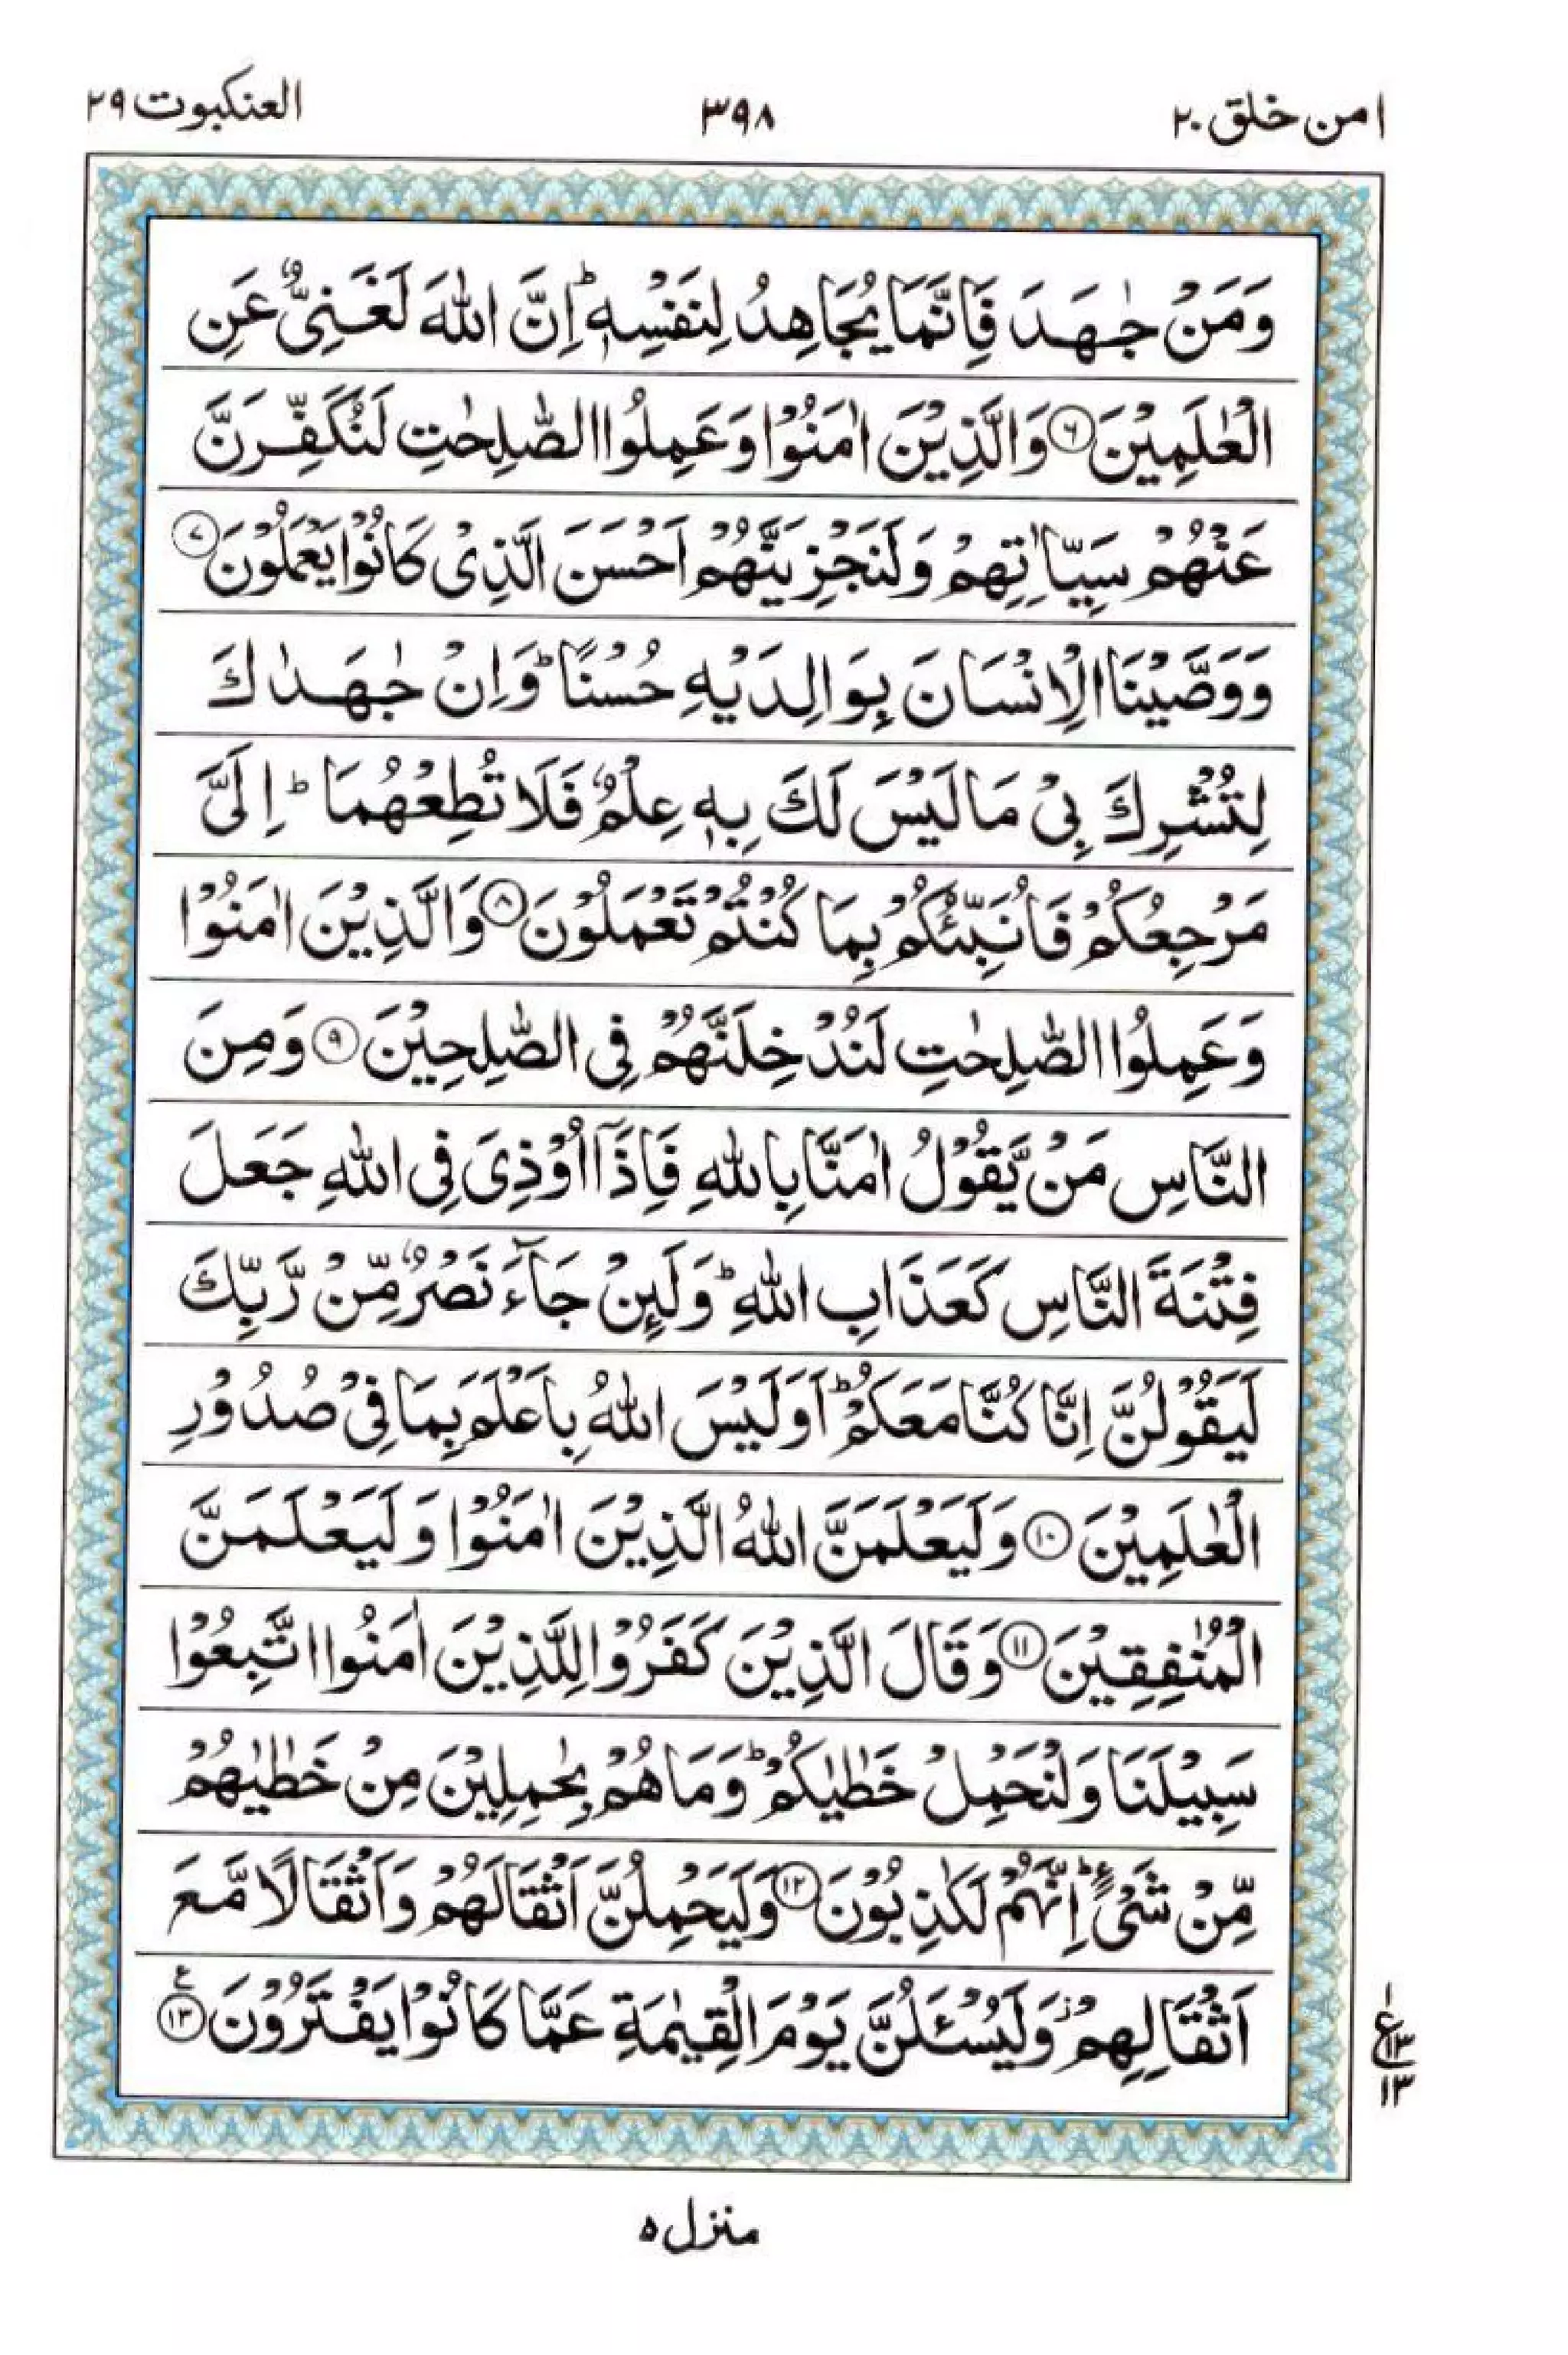 امن خلق ٢٠
٣٩٨
العنكبوت ٢٩
وَمَنْ جٰهَدَ فَاِنَّمَا يُجَاهِدُ لِنَفْسِهٖ ؕ اِنَّ اللّٰهَ لَغَنِىٌّ عَنِ
الْعٰلَمِيْنَ ۝٦ وَالَّذِيْنَ اٰمَنُوْا وَعَمِلُوا الصّٰلِحٰتِ لَنُكَفِّرَنَّ
عَنْهُمْ سَيِّاٰتِهِمْ وَلَنَجْزِيَنَّهُمْ اَحْسَنَ الَّذِىْ كَانُوْا يَعْمَلُوْنَ ۝٧
وَوَصَّيْنَا الْاِنْسَانَ بِوَالِدَيْهِ حُسْنًا ؕ وَاِنْ جٰهَدٰكَ
لِتُشْرِكَ بِىْ مَا لَيْسَ لَكَ بِهٖ عِلْمٌ فَلَا تُطِعْهُمَا ؕ اِلَىَّ
مَرْجِعُكُمْ فَاُنَبِّئُكُمْ بِمَا كُنْتُمْ تَعْمَلُوْنَ ۝٨ وَالَّذِيْنَ اٰمَنُوْا
وَعَمِلُوا الصّٰلِحٰتِ لَنُدْخِلَنَّهُمْ فِى الصّٰلِحِيْنَ ۝٩ وَمِنَ
النَّاسِ مَنْ يَّقُوْلُ اٰمَنَّا بِاللّٰهِ فَاِذَاۤ اُوْذِىَ فِى اللّٰهِ جَعَلَ
فِتْنَةَ النَّاسِ كَعَذَابِ اللّٰهِ ؕ وَلَئِنْ جَآءَ نَصْرٌ مِّنْ رَّبِّكَ
لَيَقُوْلُنَّ اِنَّا كُنَّا مَعَكُمْ ؕ اَوَلَيْسَ اللّٰهُ بِاَعْلَمَ بِمَا فِىْ صُدُوْرِ
الْعٰلَمِيْنَ ۝١٠ وَلَيَعْلَمَنَّ اللّٰهُ الَّذِيْنَ اٰمَنُوْا وَلَيَعْلَمَنَّ
الْمُنٰفِقِيْنَ ۝١١ وَقَالَ الَّذِيْنَ كَفَرُوْا لِلَّذِيْنَ اٰمَنُوا اتَّبِعُوْا
سَبِيْلَنَا وَلْنَحْمِلْ خَطٰيٰكُمْ ؕ وَمَا هُمْ بِحٰمِلِيْنَ مِنْ خَطٰيٰهُمْ
مِّنْ شَىْءٍ ؕ اِنَّهُمْ لَكٰذِبُوْنَ ۝١٢ وَلَيَحْمِلُنَّ اَثْقَالَهُمْ وَاَثْقَالًا مَّعَ
اَثْقَالِهِمْ ز وَلَيُسْئَلُنَّ يَوْمَ الْقِيٰمَةِ عَمَّا كَانُوْا يَفْتَرُوْنَ ۝١٣ ع
١
ع
١٣
١٣
منزل ٥